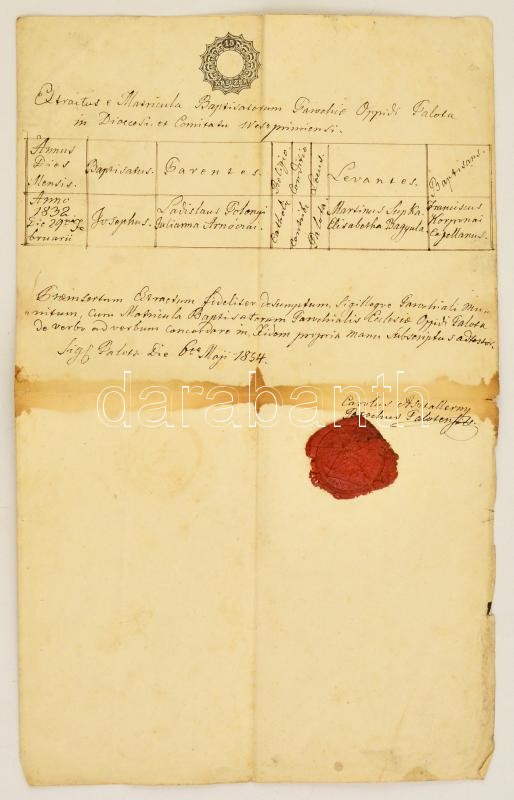 10
KREUZER
Extractus e Matricula Baptisatorum Parochiæ Oppidi Palota
in Dioecesi et Comitatu Weszprimiensi.
Annus
Dies
Mensis.
Baptisatus.
Parentes.
Religio
Conditio
Locus.
Levantes.
Baptisans.
Anno
1832
Die 29na Fe
bruarii
Josephus.
Ladislaus
Julianna
Catholi
Palota.
Martinus Supka
Elisabetha
Franciscus
Capellanus.
Præinsertum Extractum fideliter desumptum, Sigilloque Parochiali mu=
=nitum, cum Matricula Baptisatorum Parochialis Ecclesiæ Oppidi Palota
de verbo ad verbum concordare in Fidem propria manu Subscriptus attestor.
Sigl Palota Die 6ta Maji 1834.
Carolus
Parochus Palotensis
darabanth